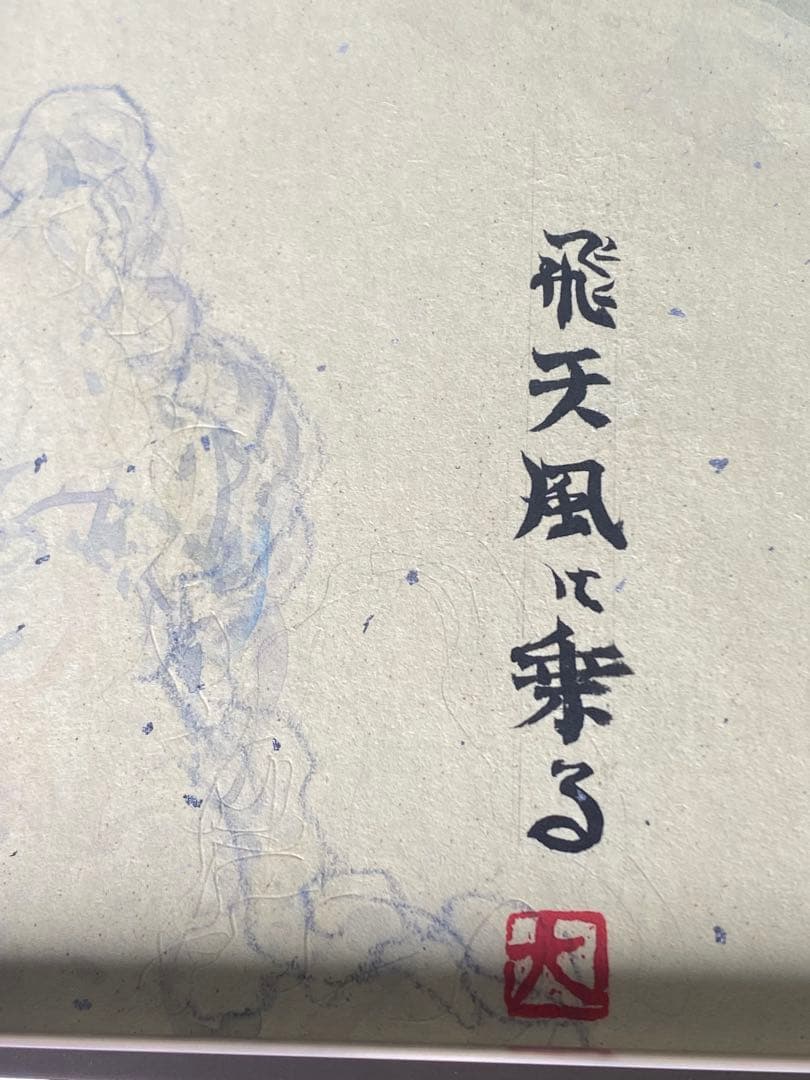 飛天風に乗る
大